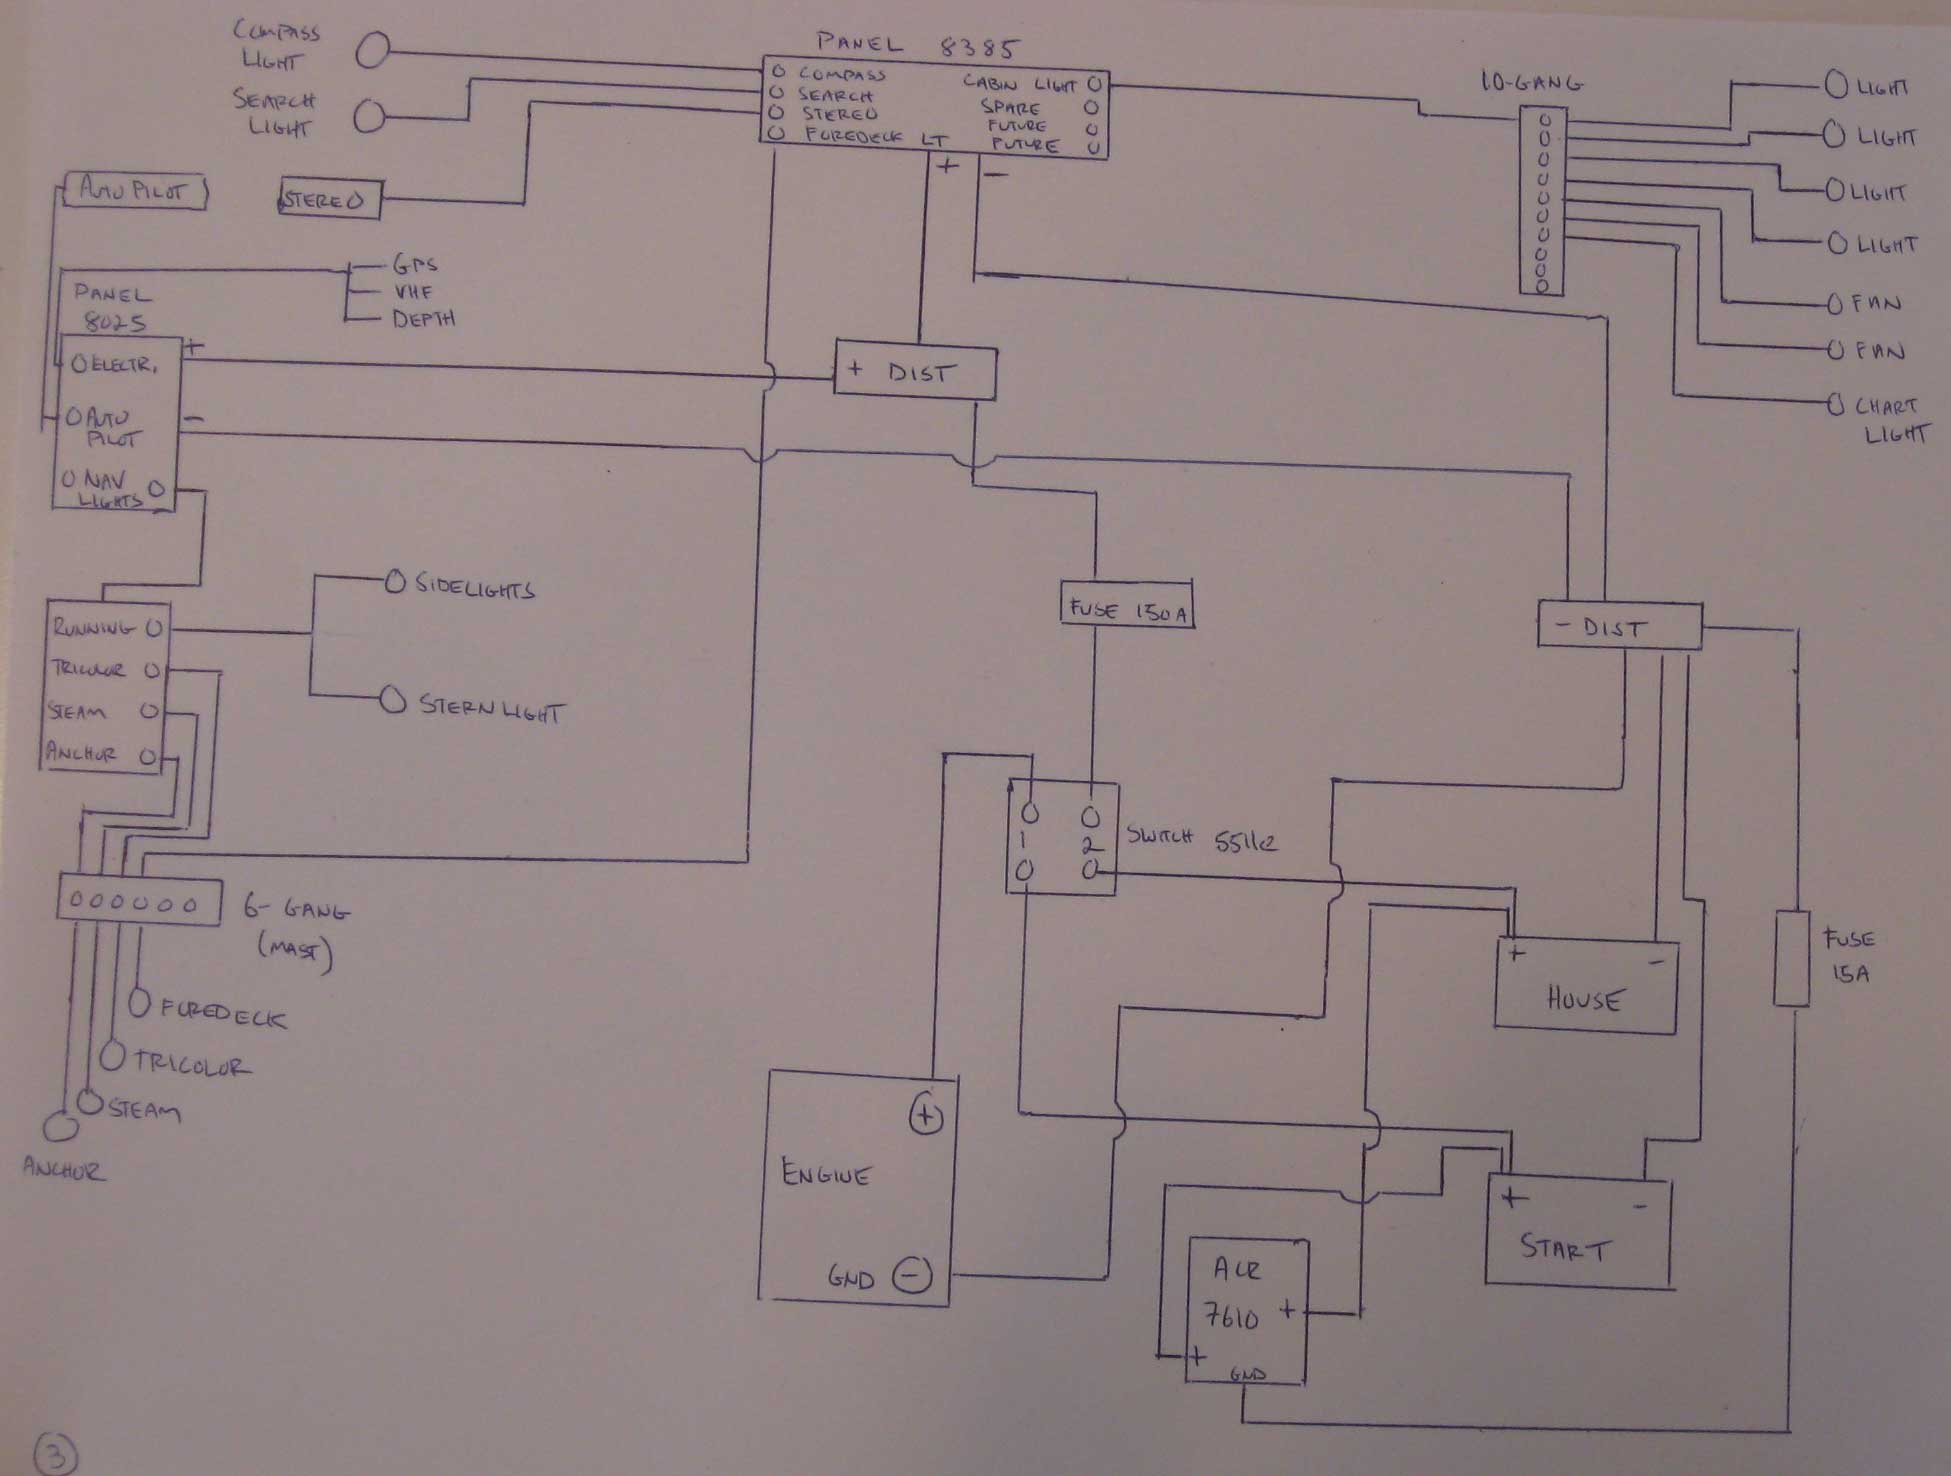 COMPASS
LIGHT
SEARCH
LIGHT
PANEL 8385
COMPASS
SEARCH
STEREO
FOREDECK LT
CABIN LIGHT
SPARE
FUTURE
FUTURE
+
-
10-GANG
LIGHT
LIGHT
LIGHT
LIGHT
FAN
FAN
CHART
LIGHT
AUTO PILOT
STEREO
GPS
VHF
DEPTH
PANEL
8025
+
ELECTR.
AUTO
PILOT
-
NAV
LIGHTS
-
+ DIST
FUSE 150A
- DIST
SIDELIGHTS
STERNLIGHT
RUNNING
TRICOLOR
STEAM
ANCHOR
6-GANG
(MAST)
FOREDECK
TRICOLOR
STEAM
ANCHOR
1
2
SWITCH 5511e
+ -
HOUSE
FUSE
15A
+
ENGINE
GND -
+ -
START
ACR
7610 +
+
GND
3